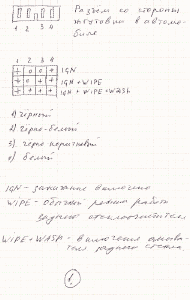 Разъём со стороны
жгутовки в автомо-
биле
1 2 3 4
1 2 3 4
+ 0 0 + IGN
0 + + IGN + WIPE
+ + + IGN + WIPE + WASH
1) чёрный
2) черно-белый
3) черно коричневый
о) белый
IGN - зажигание включено
WIPE - обычный режим работы
заднего стеклоочистителя
WIPE + WASH - включения омыва-
теля заднего стекла.
1.